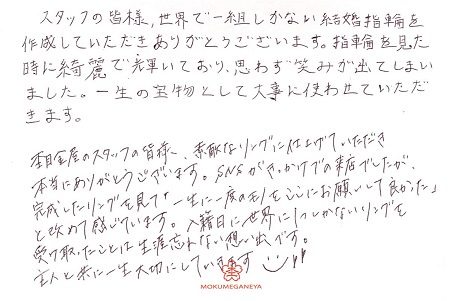 スタッフの皆様、世界で一組しかない結婚指輪を
作成していただきありがとうございます。指輪を見た
時に綺麗で輝いており、思わず笑みが出てしまい
ました。一生の宝物として大事に使わせていただ
きます。
杢目金屋のスタッフの皆様へ 素敵なリングに仕上げていただき
本当にありがとうございます。SNSがきっかけでの来店でしたが、
完成したリングを見て「一生に一度のモノをここにお願いして良かった」
と改めて感じています。入籍日に世界に1つしかないリングを
受け取ったことは生涯忘れない想い出です。
主人と共に一生大切にしていきます
MOKUMEGANEYA